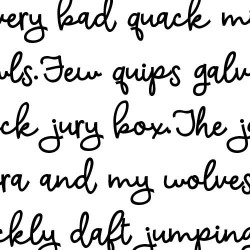 very bad quack mi
wls. Few quips galv
ck jury box. The j
ra and my wolves
ckly daft jumping